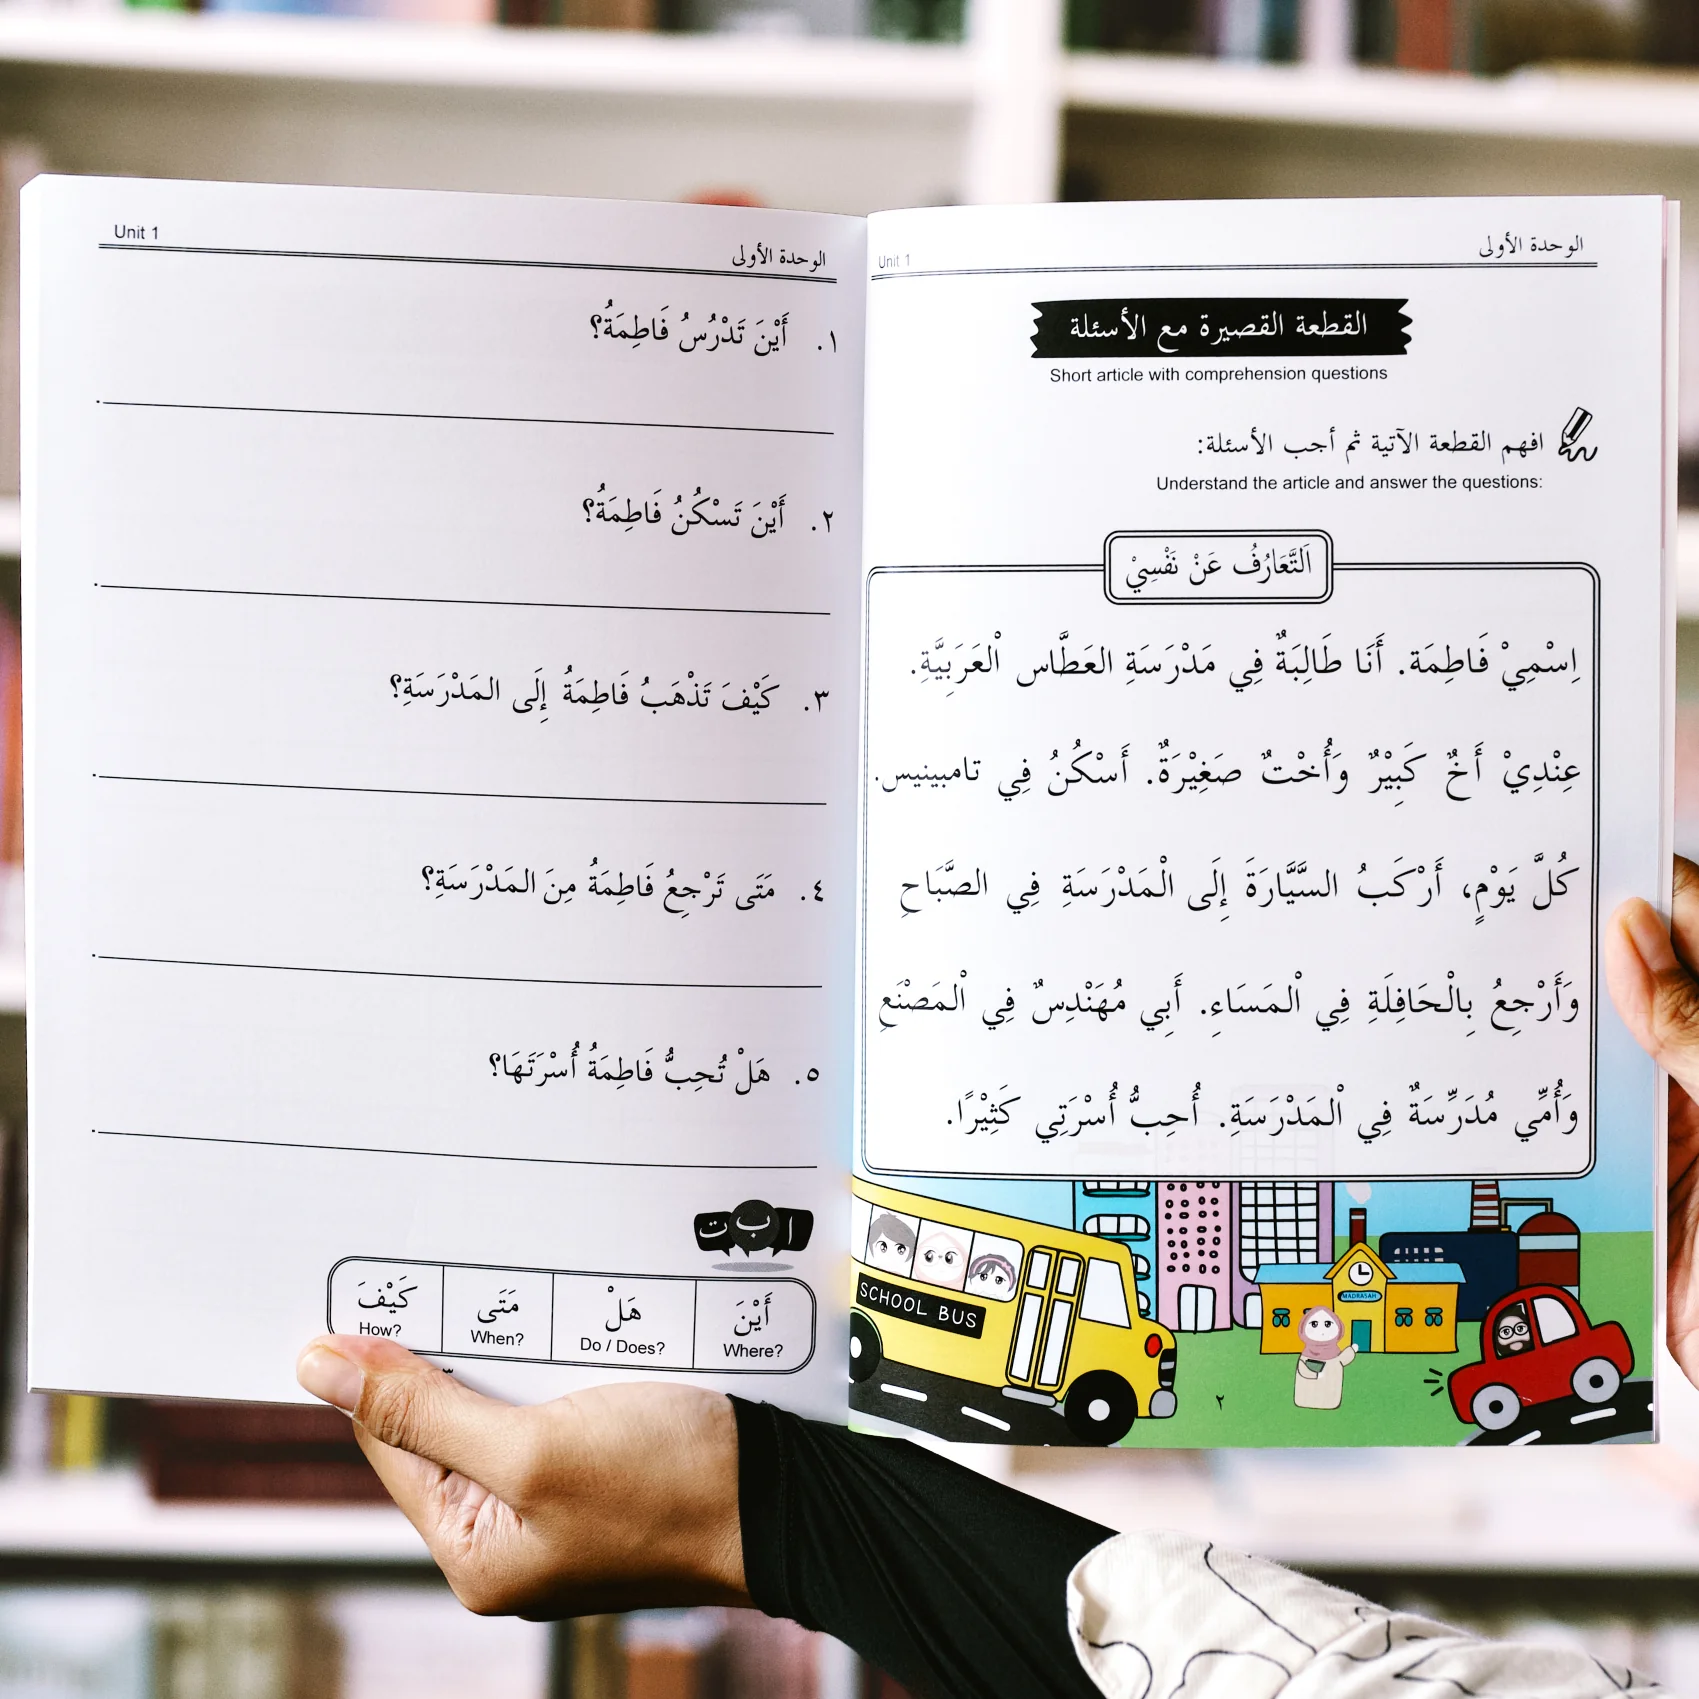 Unit 1
الوحدة الأولى
القطعة القصيرة مع الأسئلة
Short article with comprehension questions
افهم القطعة الآتية ثم أجب الأسئلة:
Understand the article and answer the questions:
اَلتَّعَارُفُ عَنْ نَفْسِيْ
اِسْمِيْ فَاطِمَة. أَنَا طَالِبَةٌ فِي مَدْرَسَةِ العَطَّاس الْعَرَبِيَّةِ.
عِنْدِيْ أَخٌ كَبِيْرٌ وَأُخْتٌ صَغِيْرَةٌ. أَسْكُنُ فِي تامبينيس.
كُلَّ يَوْمٍ، أَرْكَبُ السَّيَّارَةَ إِلَى الْمَدْرَسَةِ فِي الصَّبَاحِ
وَأَرْجِعُ بِالْحَافِلَةِ فِي الْمَسَاءِ. أَبِي مُهَنْدِسٌ فِي الْمَصْنَعِ
وَأُمِّي مُدَرِّسَةٌ فِي الْمَدْرَسَةِ. أُحِبُّ أُسْرَتِي كَثِيْرًا.
SCHOOL BUS
MADRASAH
٢
Unit 1
الوحدة الأولى
١. أَيْنَ تَدْرُسُ فَاطِمَةُ؟
٢. أَيْنَ تَسْكُنُ فَاطِمَةُ؟
٣. كَيْفَ تَذْهَبُ فَاطِمَةُ إِلَى المَدْرَسَةِ؟
٤. مَتَى تَرْجِعُ فَاطِمَةُ مِنَ المَدْرَسَةِ؟
٥. هَلْ تُحِبُّ فَاطِمَةُ أُسْرَتَهَا؟
ا ب ت
أَيْنَ هَلْ مَتَى كَيْفَ
Where? Do / Does? When? How?
٣